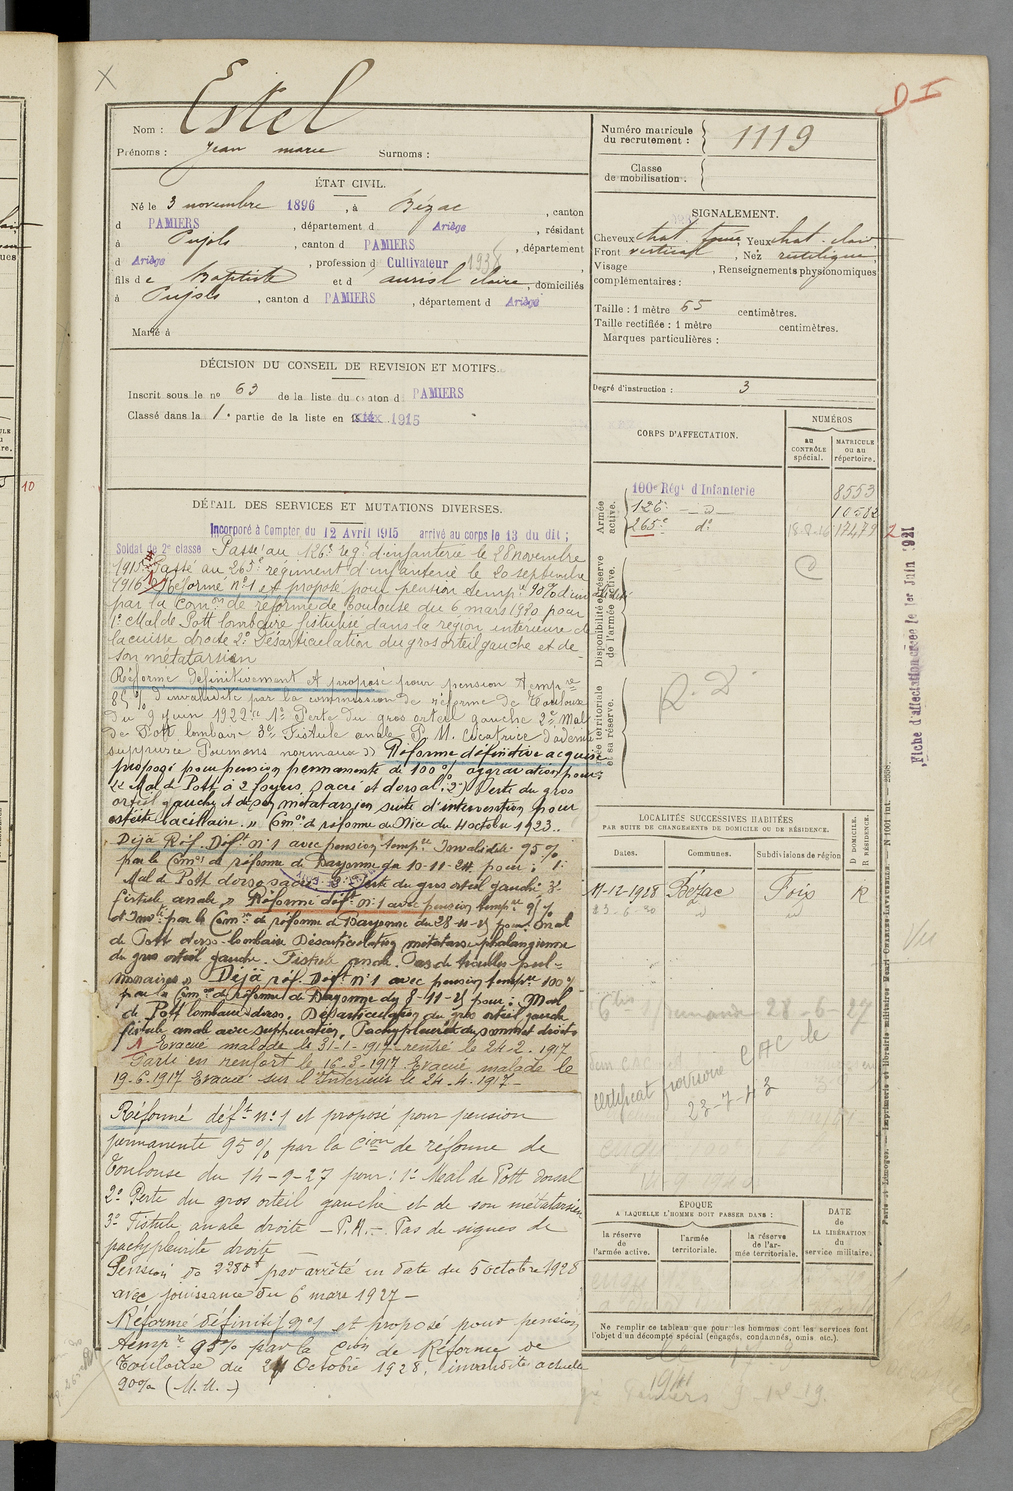 D I
Estel
Nom :
Prénoms : Jean marie Surnoms :
ÉTAT CIVIL.
Né le 3 novembre 1896, à Bézac, canton
d PAMIERS, département d Ariège, résidant
à Pujols, canton d PAMIERS, département
d Ariège, profession d Cultivateur
fils de Baptiste et d claire, domiciliés
à Pujols, canton d PAMIERS, département d Ariège
Marié à
DÉCISION DU CONSEIL DE REVISION ET MOTIFS.
Inscrit sous le no 63 de la liste du canton d PAMIERS
Classé dans la 1e partie de la liste en 1915
DÉTAIL DES SERVICES ET MUTATIONS DIVERSES.
Incorporé à Compter du 12 Avril 1915 arrivé au corps le 13 du dit ;
Soldat de 2e classe Passé au 126e rég. d'infanterie le 28 novembre
1915. Passé au 265e régiment d'infanterie le 20 septembre
1916. Réformé no 1 et proposé pour pension temp re 90%
par la Comon de réforme de Toulouse du 6 mars 1920 pour
1o Mal de Pott lombaire fistulisé dans la région intérieure de
la cuisse droite 2o Désarticulation du gros orteil gauche et de
son métatarsien
Réformé définitivement et proposé pour pension temp re
85% d'invalidité par la commission de réforme de Toulouse
du 9 juin 1922 1o Perte du gros orteil gauche 2o Mal
de Pott lombaire 3o Fistule anale P. M. Cicatrice
suppurée Poumons normaux » Réforme définitive acquise
proposé pour pension permanente de 100% aggravation pour
« Mal de Pott à 2 foyers, sacré et dorsal, 2o) Perte du gros
orteil gauche et de son métatarsien suite d'intervention pour
ostéite bacillaire. » Comon de réforme de Nice du 4 octobre 1923.
Déjà Réf. Déft no 1 avec pension tempre Invalidité 95%
par la Comon de réforme de Bayonne du 10-11-24 pour : 1o
Mal de Pott dorso sacré 2o Perte du gros orteil gauche 3o
fistule anale » Réformé déft no 1 avec pension tempre 95%
par la Comon de réforme de Bayonne du 28-11-25 pour : Mal
de Pott dorso-lombaire Désarticulation métatarso-phalangienne
du gros orteil gauche. Fistule anale. Pas de troubles pul-
monaires » Déjà réf. Déft no 1 avec pension tempre 100%
par la Comon de réforme de Bayonne du 8-11-25 pour : Mal
de Pott lombaire dorso. Désarticulation du gros orteil gauche
fistule anale avec suppuration. Pachypleurite du sommet droit »
1 Evacué malade le 31-1-1917 rentré le 24-2-1917
Parti en renfort le 16-3-1917. Evacué malade le
19-6-1917 Evacué sur l'Intérieur le 24-4-1917 -
Réformé déft no 1 et proposé pour pension
permanente 95% par la Cion de réforme de
Toulouse du 14-9-27 pour : 1o Mal de Pott dorsal
2o Perte du gros orteil gauche et de son métatarsien
3o Fistule anale droite - P.M. - Pas de signes de
pachypleurite droite -
Pension de 2280f par arrêté en date du 5 octobre 1928
avec jouissance du 6 mars 1927 -
Réformé définitif no 1 et proposé pour pension
tempre 95% par la Cion de Réforme de
Toulouse du 24 Octobre 1928, invalidité actuelle
90% (M.M. -)
Numéro matricule
du recrutement : 1119
Classe
de mobilisation :
SIGNALEMENT.
Cheveux chat. foncé Yeux chat. clair
Front vertical, Nez rectiligne
Visage, Renseignements physionomiques
complémentaires :
Taille : 1 mètre 65 centimètres.
Taille rectifiée : 1 mètre centimètres.
Marques particulières :
Degré d'instruction : 3
CORPS D'AFFECTATION.
NUMÉROS
AU CONTRÔLE spécial.
MATRICULE ou au répertoire.
Armée active.
100e Régt d'Infanterie 8553
126e - d - 10582
265e do 17479
Disponibilité et réserve de l'armée active.
Armée territoriale et sa réserve.
R. D
LOCALITÉS SUCCESSIVES HABITÉES
PAR SUITE DE CHANGEMENTS DE DOMICILE OU DE RÉSIDENCE.
Dates. Communes. Subdivisions de région
D DOMICILE.
R RÉSIDENCE.
11-12-1928 Bézac Foix R
28-6-27
certificat provisoire CAC le
23-7-43
ÉPOQUE
A LAQUELLE L'HOMME DOIT PASSER DANS :
la réserve de l'armée active.
l'armée territoriale.
la réserve de l'armée territoriale.
DATE DE LA LIBÉRATION du service militaire.
Ne remplir ce tableau que pour les hommes dont les services font
l'objet d'un décompte spécial (engagés, condamnés, omis etc.).
Fiche d'affectation créée le 1er Juin 1921
Vu
10
Paris et Limoges. — Imprimerie et librairie militaires Henri CHARLES-LAVAUZELLE.